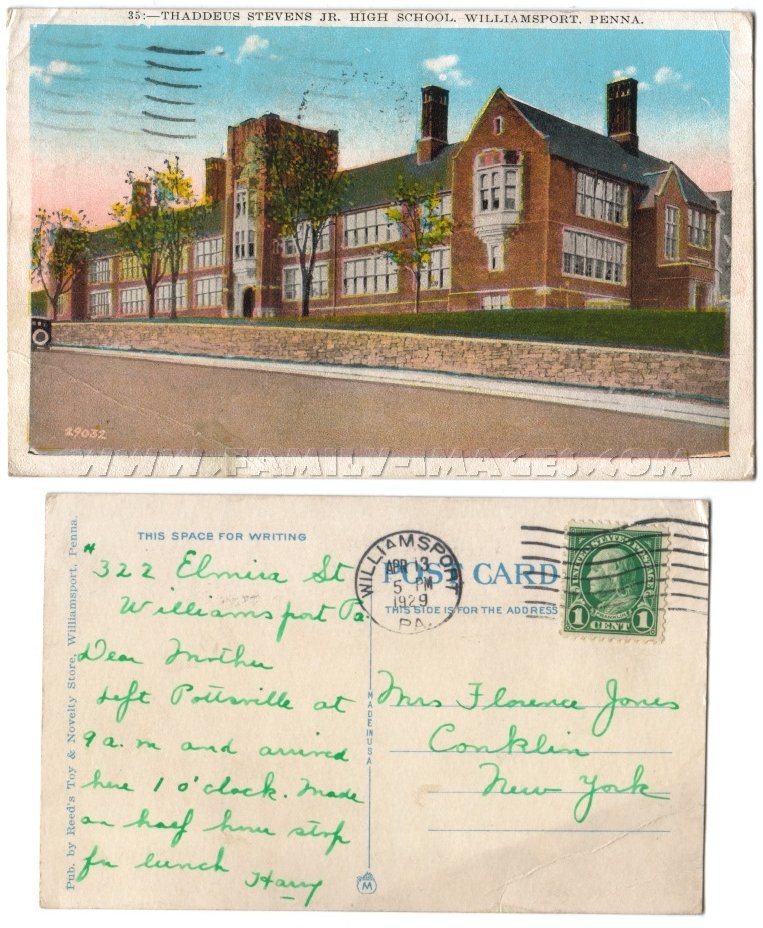 35:—THADDEUS STEVENS JR. HIGH SCHOOL, WILLIAMSPORT, PENNA.
29032
WWW.FAMILY-IMAGES.COM
Pub. by Reed's Toy & Novelty Store, Williamsport, Penna.
THIS SPACE FOR WRITING
#322 Elmira St
Williamsport Pa.
Dear Mother
Left Pottsville at
9 a.m and arrived
here 1 o'clock. Made
an half hour stop
for lunch
Harry
MADE IN USA
M
POST CARD
THIS SIDE IS FOR THE ADDRESS
WILLIAMSPORT
APR 13
5 PM
1929
PA.
UNITED STATES POSTAGE
FRANKLIN
1 CENT 1
Mrs Florence Jones
Conklin
New York